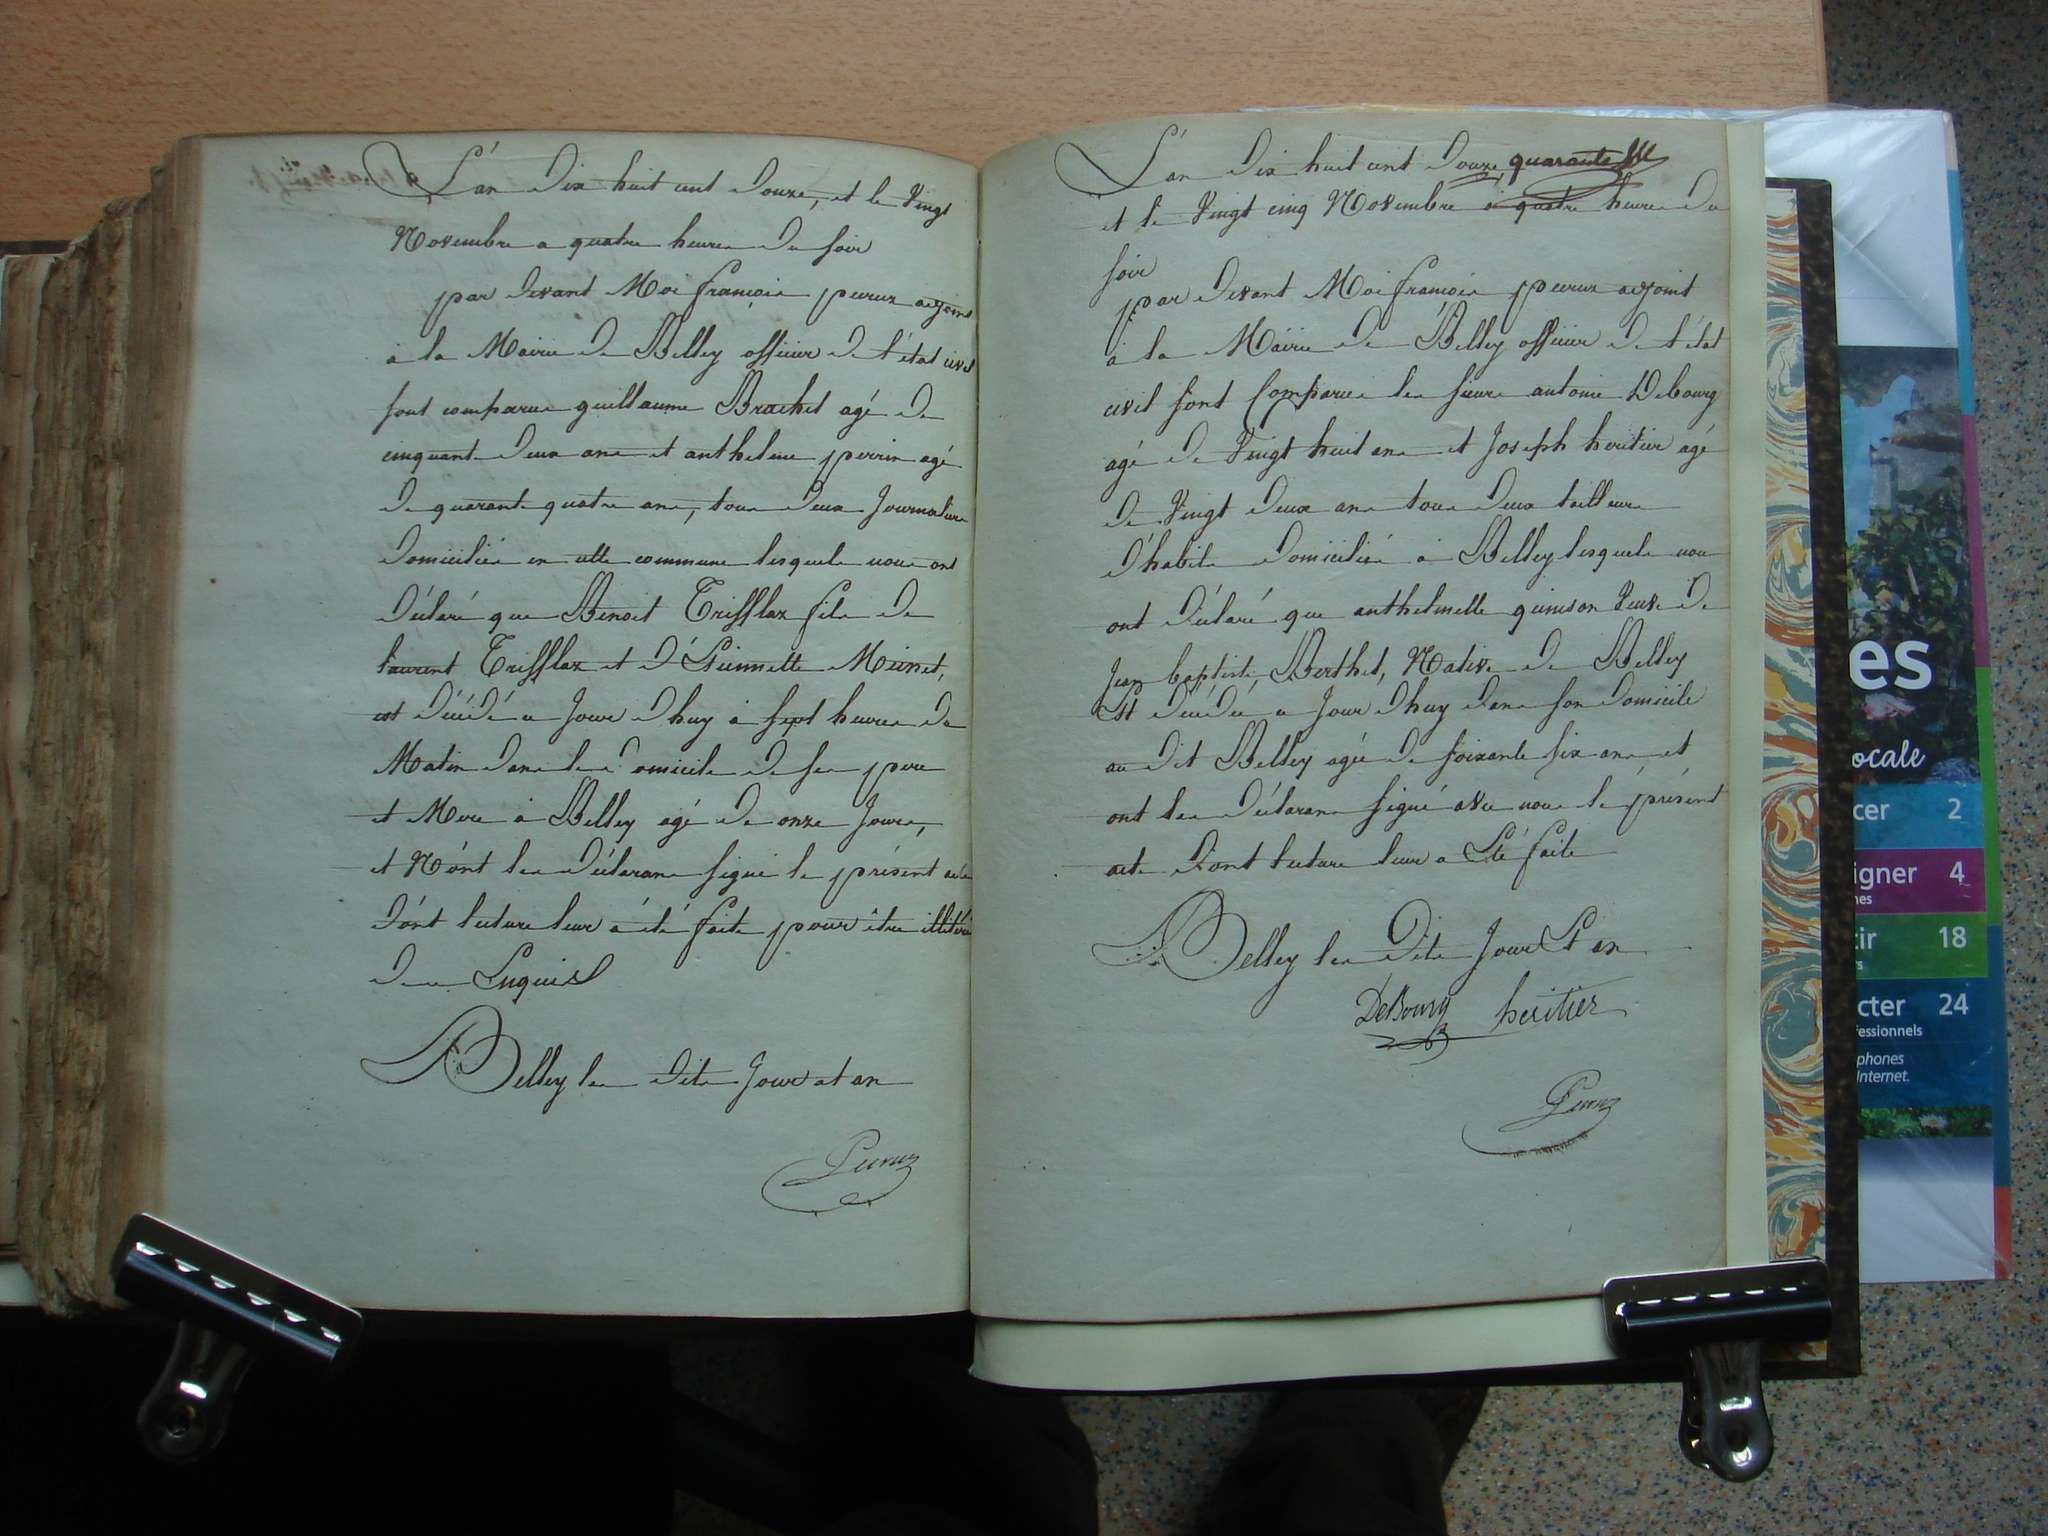 L'an Dix huit cent Douze, et le Vingt
Novembre a quatre heures Du soir
par Devant Moi françois peuruz adjoint
à la Mairie De Belley officier De l'état civil
sont comparus guillaume Brachet agé De
cinquante Deux ans et anthelme perrin agé
De quarante quatre ans, tous Deux Journaliers
Domiciliés en cette commune lesquels nous ont
Déclaré que Benoit Trifflaz fils De
laurent Trifflaz et D'Etiennette
est Décédé ce Jour D'huy à sept heures Du
Matin Dans le Domicile De ses pere
et Mere à Belley agé De onze Jours,
et N'ont les Déclarans signé le présent acte
D'ont lecture leur à été faite pour être illitérés
De ce Enquis
A Belley les Dits Jour et an
L'an Dix huit cent Douze, quarante
et le Vingt cinq Novembre a quatre heures Du
soir
par Devant Moi françois peuruz adjoint
à la Mairie De Belley officier De l'état
civil sont Comparus les sieurs antoine Debourg
agé De Vingt huit ans et Joseph heritier agé
De Vingt Deux ans tous Deux tailleurs
D'habits Domiciliés à Belley lesquels nous
ont Déclaré que anthelmette quinson Veuve De
Jean baptiste Berthet, Native De Belley
Est Décédée ce Jour D'huy Dans son Domicile
au Dit Belley agée De soixante six ans et
ont les Déclarans signé avec nous le présent
acte Dont lecture leur a Eté faite
A Belley les Dits Jour Et an
DeBourg heritier
es
ocale
cer 2
igner 4
nes
tir 18
rs
cter 24
fessionnels
phones
Internet.